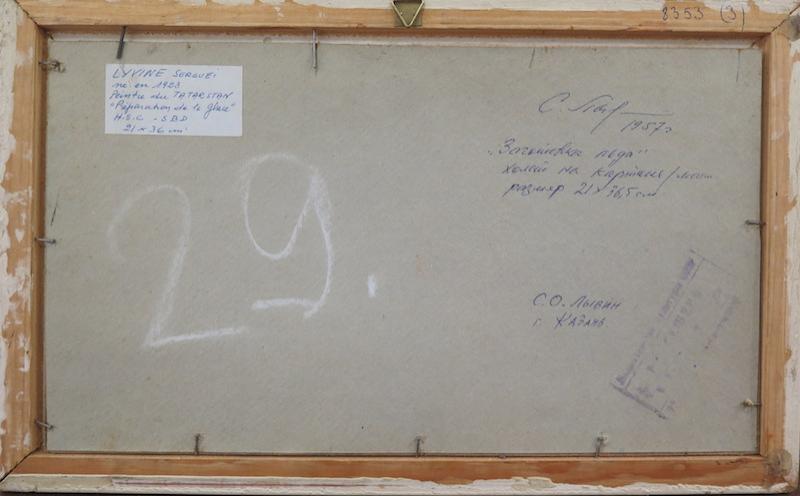 8353 (3)
LYVINE SERGUEI
né en 1923
Peintre du TATARSTAN
"Préparation de la glace"
H.S.C - S.B.D
21 x 36 cm
1957г
"Заготовка льда"
холст на картоне/масло
размер 21 x 36,5 см
29.
С.О. Лывин
г. Казань